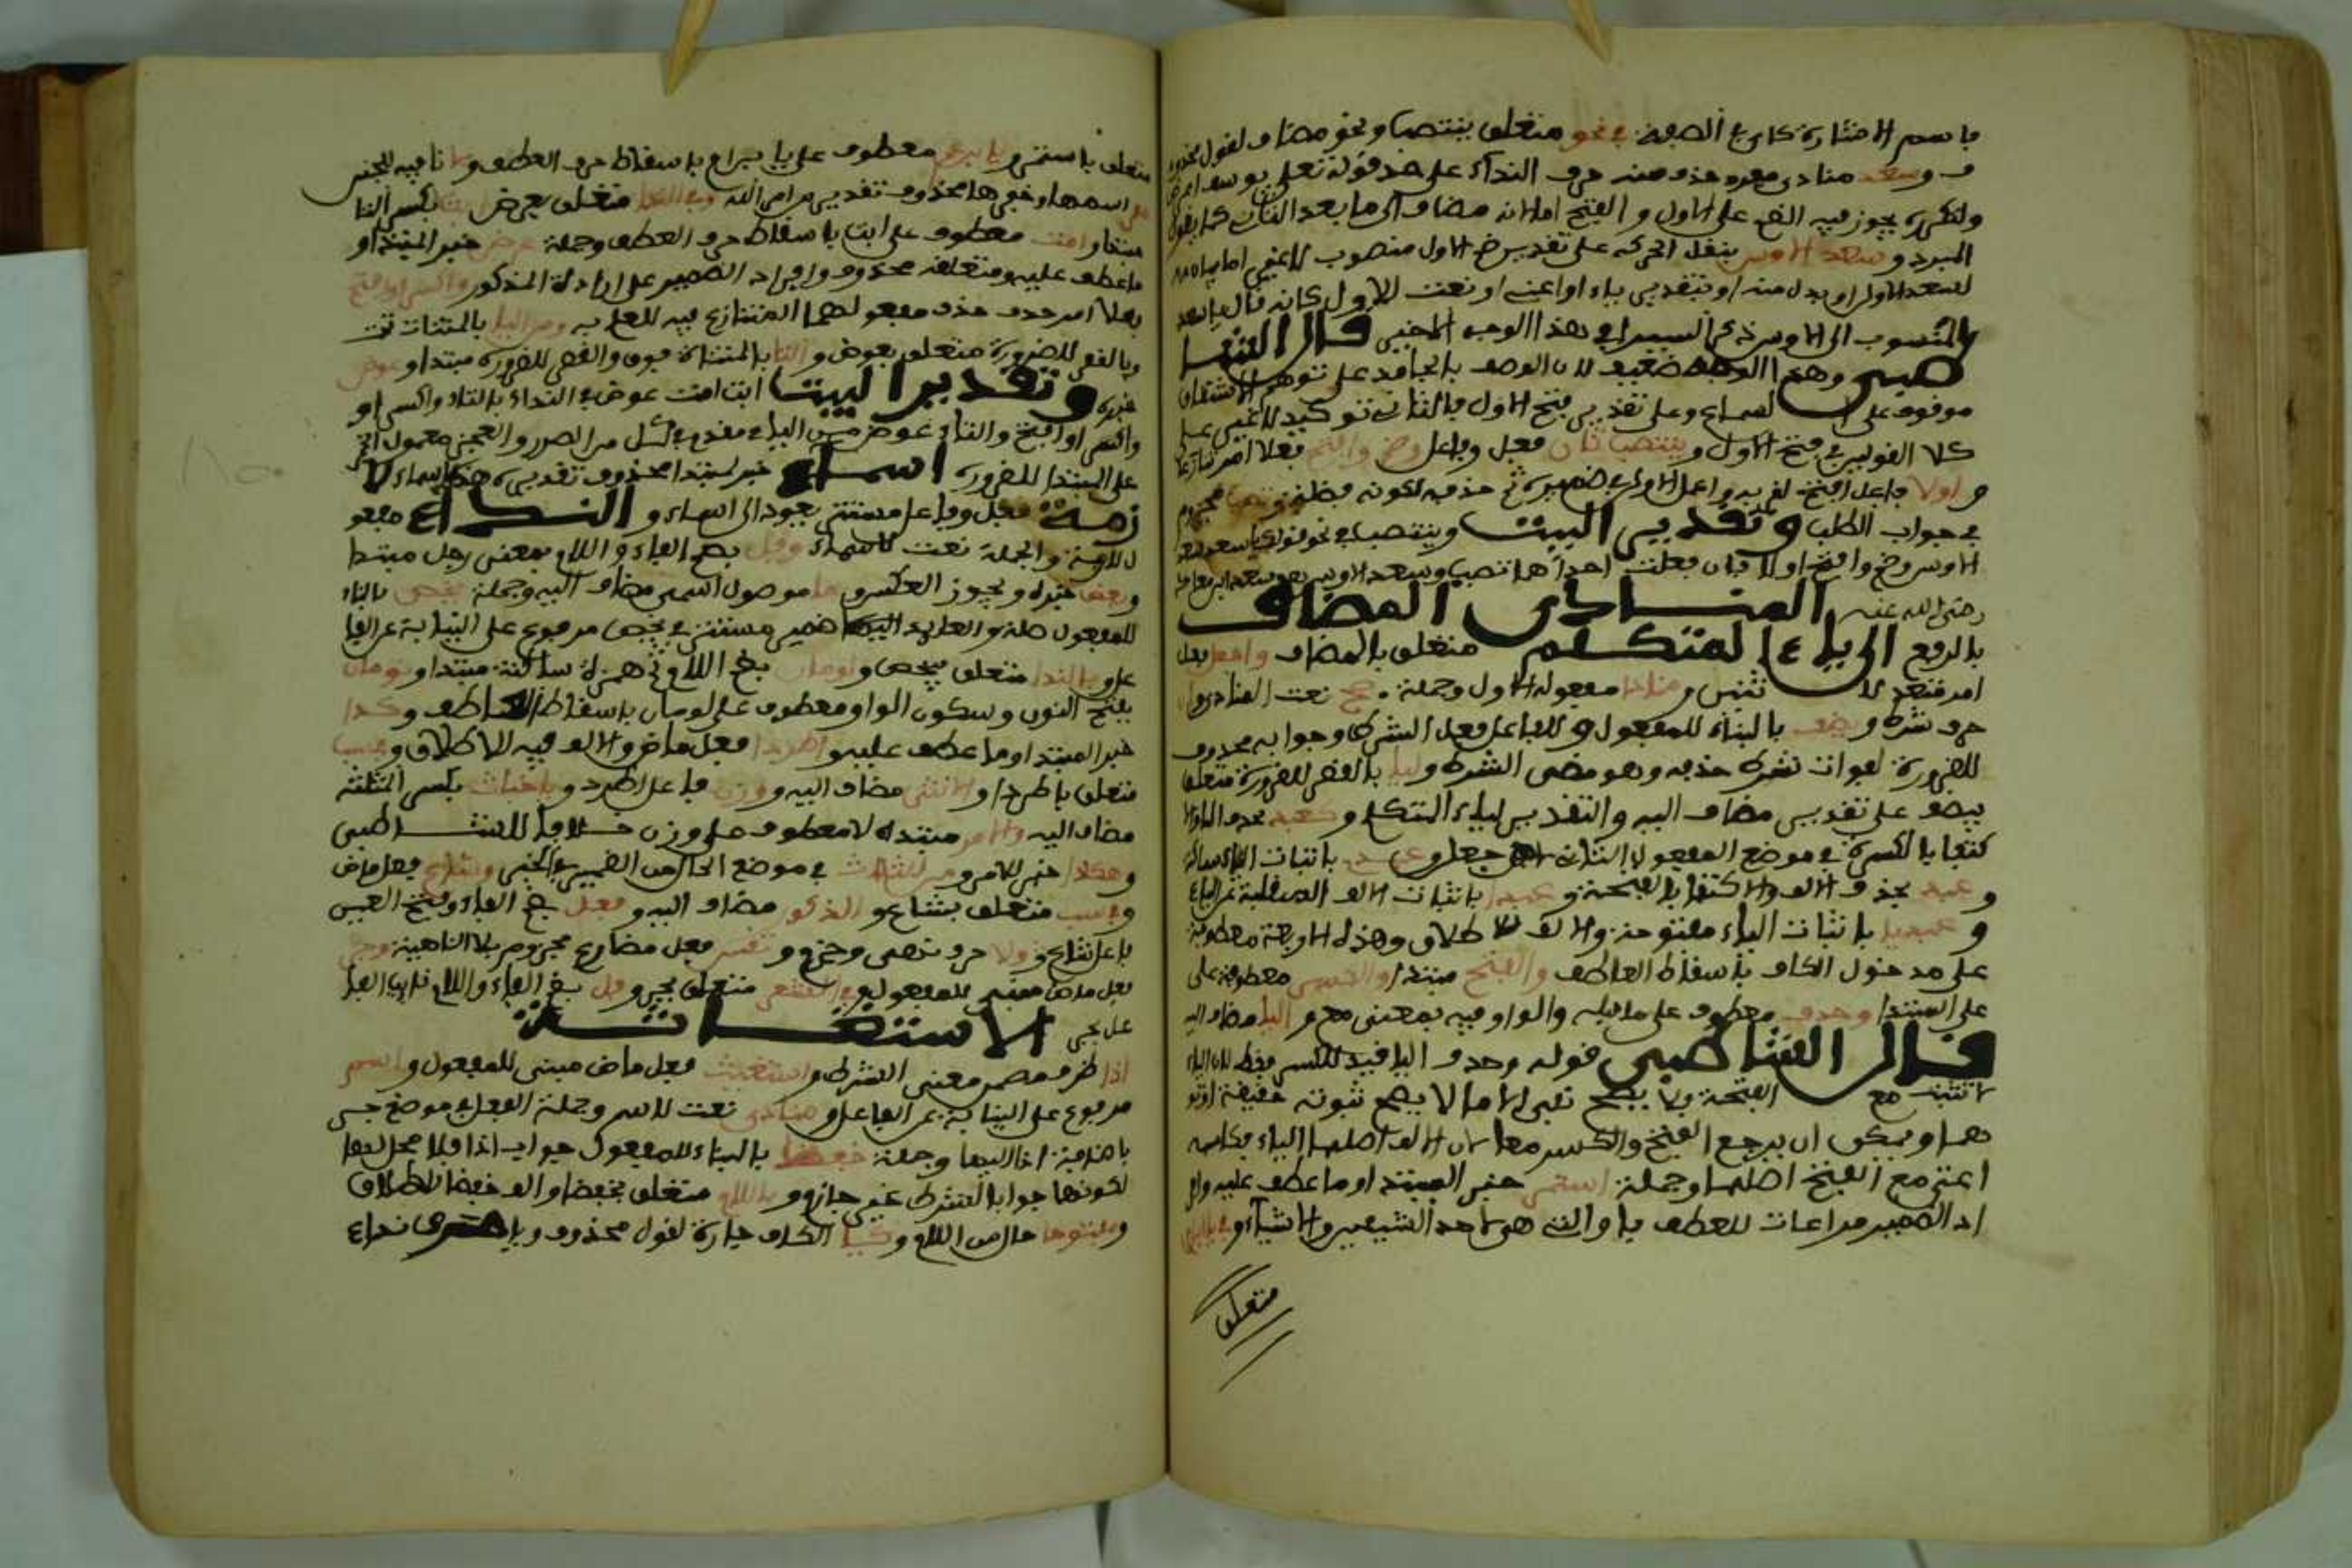 باسم الاشارة كاي في الصفة في نحو متعلق بينتصب ونحو مضاف لقول محذو
ف وسعد منادى مفرد حذف منه حرف النداء على حد قوله تعلى يوسف اعرض
ولتكرره يجوز فيه الضم على الاول والفتح اما انه مضاف الى ما بعد الثاني كما يقول
المبرد وسعد الاوس بنقل الحركة على تقدير ضم الاول منصوب لا غير اما
لسعد الاول او بدل منه او بتقدير ياء او اعني او نعت للاول كانه قال يا سعد
المنسوب الى الاوس ذكر السيرافي هذا الوجه الاخير قال الشا
طبي وهذا الوجه ضعيف لان الوصف بالجامد على توهم الاشتقاق
موقوف على السماع وعلى تقدير فتح الاول فالثاني توكيد لا غير على
كلا القولين في فتح الاول وينتصب ثان فعل وفاعل وضم وافتح فعلا امر تنازعا
في جواب الطلب وتقدير البيت وينتصب في نحو قولك يا سعد سعد
الاوس وضم وافتح اولا فان فعلت احداهما تصب وسعد الاوس هو سعد ابن معاذ
رضي الله عنه المنادى المضاف
بالرفع الى ياء المتكلم متعلق بالمضاف واجعل فعل
امر متعد لاثنين ومنادى مفعوله الاول وجملة صح نعت لمنادى وان
حرف شرط ويضف بالبناء للمفعول وللفاعل فعل الشرط وجوابه محذوف
للضرورة لفوات شرط حذفه وهو مضي الشرط وليا بالقصر للضرورة متعلق
بيضف على تقدير مضاف اليه والتقدير لياء المتكلم وكعبد بحذف الياء والا
كتفا بالكسرة في موضع المفعول الثاني لاجعل وعبدي باثبات الياء ساكنة
وعبد بحذف الالف والاكتفا بالفتحة وعبدا باثبات الالف المنقلبة عن الياء
وعبديا باثبات الياء مفتوحة والالف للاطلاق وهذه الاربعة معطوفة
على مدخول الكاف باسقاط العاطف والفتح مبتدا والكسر معطوف على
على المبتدا وحذف معطوف على ما قبله والواو فيه بمعنى مع والياء مضاف اليه
قال الشاطبي قوله وحذف اليا قيد للكسر فقط لان الياء
لا تثبت مع الفتحة ولا يصح نفي الا ما لا يصح ثبوته حقيقة او تو
هما ويمكن ان يرجع الفتح والكسر معا لان الالف اصلها الياء فكانه
اعتبر مع الفتح اصلها وجملة استمر خبر المبتدا وما عطف عليه وافر
اد الضمير مراعات للعطف باو التي هي لاحد الشيئين والاشياء وفي يا ابن
متعلق
متعلق باستمر ويا ابن عم معطوف على يا ابن ام باسقاط حرف العطف ولا نافيه للجنس
مفر اسمها وخبرها محذوف تقديره من امر الله وفي الندا متعلق بعرض ابت بكسر التا
مبتدا وامت معطوف على ابت باسقاط حرف العطف وجملة عرض خبر المبتدا و
ما عطف عليه ومتعلقه محذوف وافراد الضمير على ارادة المذكور واكسر او افتح
فعلا امر حذف مفعولهما المتنازع فيه للعلم به ومن اليا بالمثنات تحت
وبالقصر للضرورة متعلق بعوض والتا بالمثناة فوق والقصر للضرورة مبتدا وعوض
خبره وتقدير البيت ابت امت عرض في النداء بالتاء واكسر او
واكسر او افتح والتاء عوض من الياء فقدم في كل من الصدر والعجز معمول الخبر
على المبتدا للضرورة اسماء خبر لمبتدا محذوف تقديره هذه اسماء لا
زمت فعل وفاعل مستتر يعود الى اسماء والنداء مفعو
ل لازمت والجملة نعت لاسماء وفل بضم الفاء واللام بمعنى رجل مبتدا
وبعض خبره ويجوز العكس وما موصول اسمي مضاف اليه وجملة يخص بالبناء
للمفعول صلة والعايد اليها ضمير مستتر في يخص مرفوع على النيابة عن الفا
عل وبالندا متعلق بيخص ولومان بضم اللام ثم همزة ساكنة مبتدا ونومان
بفتح النون وسكون الواو معطوف على لومان باسقاط العاطف وكذا
خبر المبتدا وما عطف عليه واطردا فعل ماض والالف فيه للاطلاق وفي سب
متعلق باطردا والانثى مضاف اليه ووزن فاعل اطرد ويا خباث بكسر المثلثة
مضاف اليه والامر مبتدا لا معطوف على وزن خلافا للشاطبي
وهكذا خبر الامر ومن الثلاث في موضع الحال من الضمير في الخبر وشاع فعل ماض
وفي سب متعلق بشاع والذكور مضاف اليه وفعل بضم الفاء وفتح العين
فاعل شاع ولا حرف نهي وجزم وتقس فعل مضارع مجزوم بلا الناهية وجر
فعل ماض مبني للمفعول وفي الشعر متعلق بجر وفل بضم الفاء واللام نايب الفا
عل بجر الاستغاثة
اذا ظرف مضمن معنى الشرط واستغيث فعل ماض مبني للمفعول واسم
مرفوع على النيابة عن الفاعل ومنادى نعت لاسم وجملة الفعل في موضع جر
باضافة اذا اليها وجملة خفضا بالبناء للمفعول جواب اذا فلا محل لها
لكونها جوابا لشرط غير جازم وباللام متعلق بخفضا والف خفضا للاطلاق
ومفتوحا حال من اللام وكيا الكاف جارة لقول محذوف ويا حرف نداء